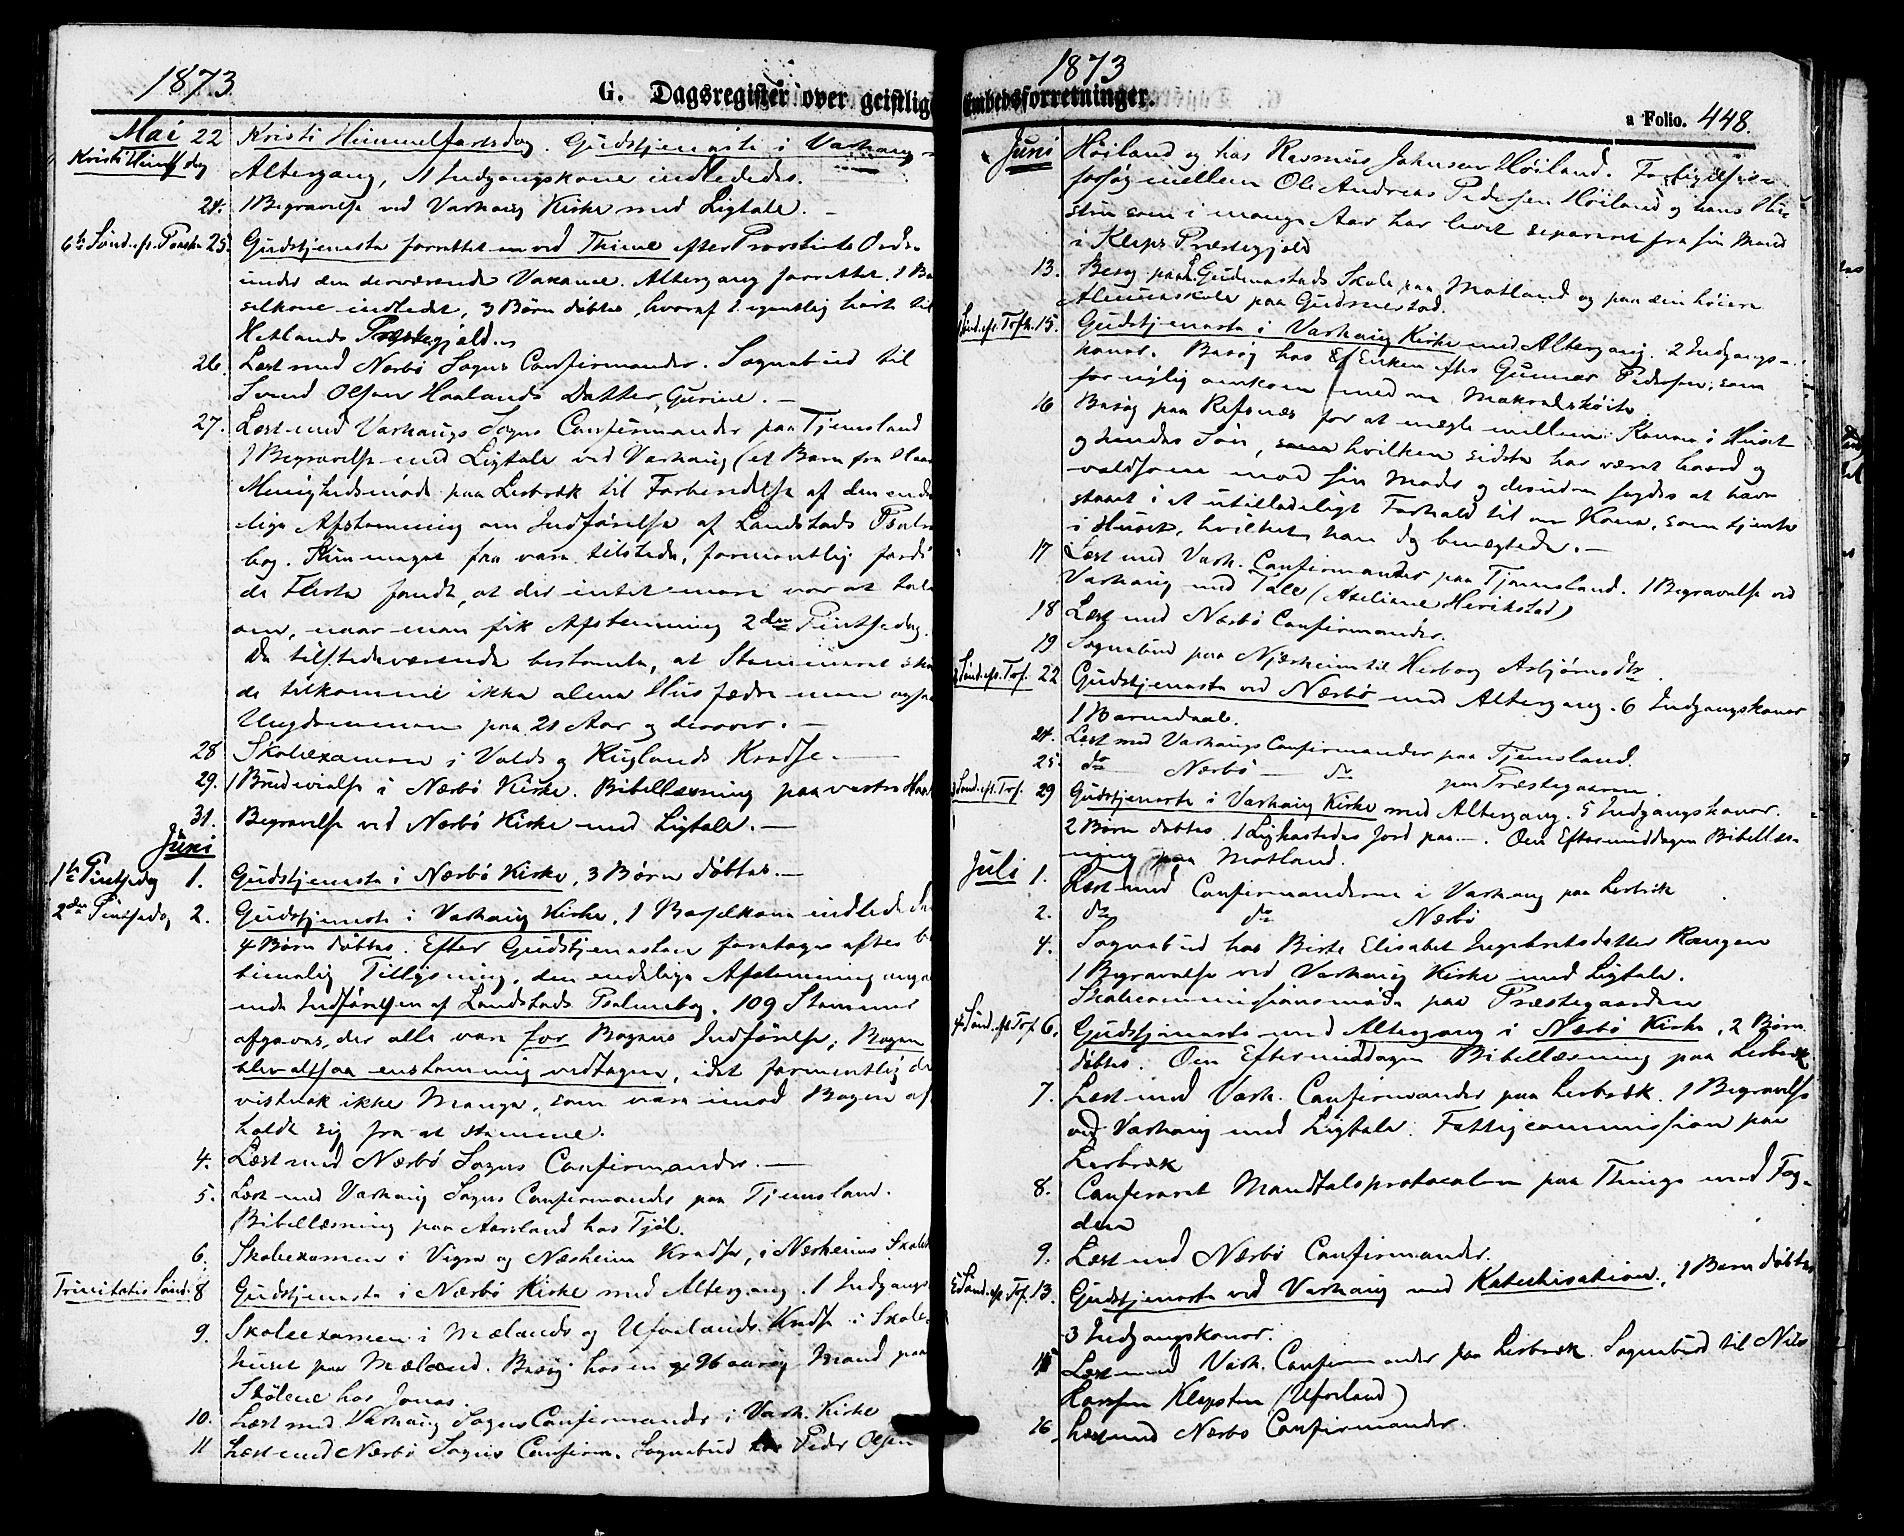 1873
G. Dagsregister over geistlig
Mai 22 Kristi Himmelfartsdag. Gudstjeneste i Varhaug
Kristi Himlf dag Altergang, 1 Indgangskone indlededes.
24. 1 Begravelse ved Varhaug Kirke med Ligtale. –
6te Sønd. ef. Paaske 25. Gudstjeneste forrettet ved Thime efter Provstiets Ordre
under den derværende Vakance. Altergang forrettet. 1 Ba
selkone indledet, 3 Børn døbtes, hvoraf 1 egentlig hørte til
Hetlands Præstegjeld.
26. Læst med Nærbø Sogns Confirmander. Sognebud til
Svend Olsen Haalands Datter, Gurine. –
27. Læst med Varhaugs Sogns Confirmander paa Tjemsland
1 Begravelse med Ligtale ved Varhaug (et Barn fra Haa
Menighedsmøde paa Lerbræk til Forberedelse af den ende
lige Afstemning om Indførelse af Landstads Psalme
bog. Kun meget faa vare tilstede, formentlig fordi
de Fleste fandt, at der intet mere var at tale
om, naar man fik Afstemning 2den Pintsedag.
De tilstedeværende bestemte, at Stemmeret skul
de tilkomme ikke alene Husfædre men ogsaa
Ungdommen paa 21 Aar og derover. –
28 Skoleexamen i Valds og Kuglands Kredse. –
29. 1 Brudevielse i Nærbø Kirke. Bibellæsning paa vestre Haa
31. Begravelse ved Nærbø Kirke med Ligtale. –
Juni
1te Pintsedag 1. Gudstjeneste i Nærbø Kirke, 3 Børn døbtes. –
2den Pintsedag 2. Gudstjeneste i Varhaug Kirke. 1 Barselkone indlede
4 Børn døbtes. Efter Gudstjenesten foretoges efter b
timelig Tillysning, den endelige Afstemning anga
ende Indførelsen af Landstads Psalmebog. 109 Stemmer
afgaves, der alle vare for Bogens Indførelse; Bogen
blev altsaa enstemmig vedtagen, idet formentlig de
vistnok ikke Mange, som vare imod Bogen af
holdt sig fra at stemme.
4. Læst med Nærbø Sogns Confirmander. –
5. Læst med Varhaug Sogns Confirmander paa Tjemsland.
Bibellæsning paa Aarsland hos Tjøl.
6. Skoleexamen i Vigre og Næsheim Kredse, i Næsheims Skole
Trinitatis Sønd. 8 Gudstjeneste i Nærbø Kirke med Altergang. 1 Indgangs
9. Skoleexamen i Mælands og Ueland Kreds i Skole
huset paa Mæland. Besøg hos en 96 aarig Mand paa
hos Jonas.
10. Læst med Varhaug Sogns Confirmander i Varh. Kirke
11 Læst med Nærbø Sogns Confirm. Sognebud hos Peder Olsen
1873
Embedsforretninger.
a Folio. 448.
Juni Høiland og hos Rasmus Johnsen Høiland. Forligelses-
forsøg mellem Ole Andreas Pedersen Høiland og hans Hu-
stru som i mange Aar har levet separeret fra sin Mand
i Kleps Præstegjeld
13. Besøg paa Gudmestads Skole, paa Motland og paa den høiere
Almueskole paa Gudmestad.
Sønd. ef. Tref. 15. Gudstjeneste i Varhaug Kirke med Altergang. 2 Indgangs-
koner. Besøg hos Enken efter Gunner Pedersen, som
for nylig omkom med en Makrelskøite.
16 Besøg paa Refsnes for at mægle mellem Konen i Huset
og hendes Søn, hvilken sidste har været haard og
voldsom mod sin Moder og desuden sagdes at have
staaet i et utilladeligt Forhold til en Kone, som tjente
i Huset, hvilket han dog benægtede. –
17 Læst med Varh. Confirmander paa Tjemsland. 1 Begravelse ved
Varhaug med Tale (Axeliane Herikstad)
18 Læst med Nærbø Confirmander.
19 Sognebud paa Njærheim til Herborg Asbjørnsdtr.
Sønd. ef. Tref. 22 Gudstjeneste ved Nærbø med Altergang. 6 Indgangskoner
1 Barnedaab.
24. Læst med Varhaugs Confirmander paa Tjemsland.
25. do – Nærbø – do paa Præstegaarden.
3 Sønd. ef. Tref. 29 Gudstjeneste i Varhaug Kirke med Altergang. 5 Indgangskoner.
2 Børn døbtes. 1 Lig kastedes Jord paa –. Om Eftermiddagen Bibellæs-
ning paa Motland.
Juli 1. Læst med Confirmanderne i Varhaug paa Lerbræk
2. do do Nærbø
4. Sognebud hos Birte Elisabet Ingebretsdatter Rongen
1 Begravelse ved Varhaug Kirke med Ligtale.
Skolecommissionsmøde paa Præstegaarden
4 Sønd. ef. Tref. 6. Gudstjeneste med Altergang i Nærbø Kirke, 2 Børn
døbtes. Om Eftermiddagen Bibellæsning paa Lerbræk
7. Læst med Varh. Confirmander paa Lerbræk. 1 Begravelse
ved Varhaug med Ligtale. Fattigcommission paa
Lerbræk
8. Confereret Mandtalsprotocollen paa Thinge med Fog-
den
9. Læst med Nærbø Confirmander.
5 Sønd. ef. Tref. 13. Gudstjeneste ved Varhaug med Katechisation, 1 Barn døbtes
3 Indgangskoner.
15 Læst med Varh. Confirmander paa Lerbræk. Sognebud til Nils
Larssen Klepsten (Ueland)
16. Læst med Nærbø Confirmander.